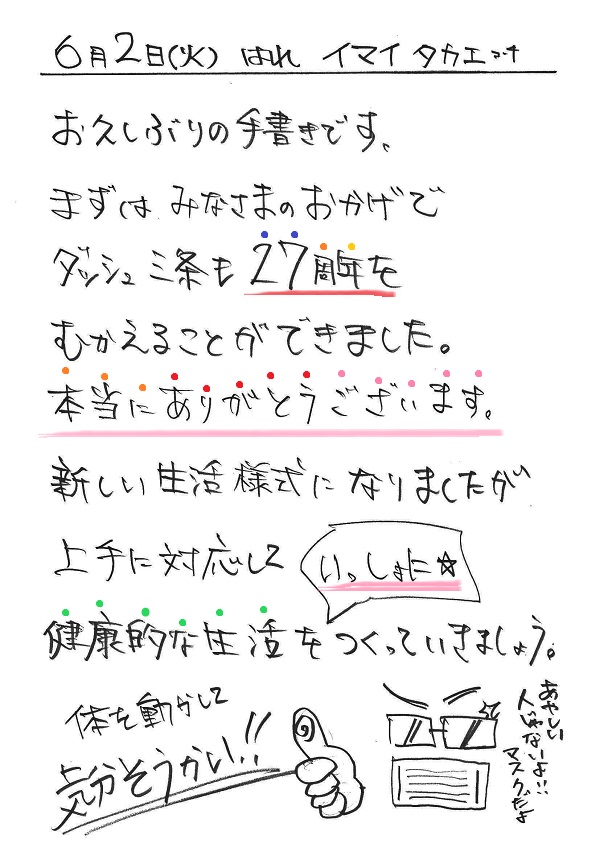 6月2日(火) はれ イマイタカエコーチ
お久しぶりの手書きです、
まずは みなさまのおかげで
ダッシュ三条も 27周年を
むかえることができました。
本当にありがとうございます。
新しい生活様式になりましたが
上手に対応して いっしょに☆
健康的な生活をつくっていきましょう。
体を動かして
気分そうかい!!
あやしい
人じゃないよ!!
マスクだよ